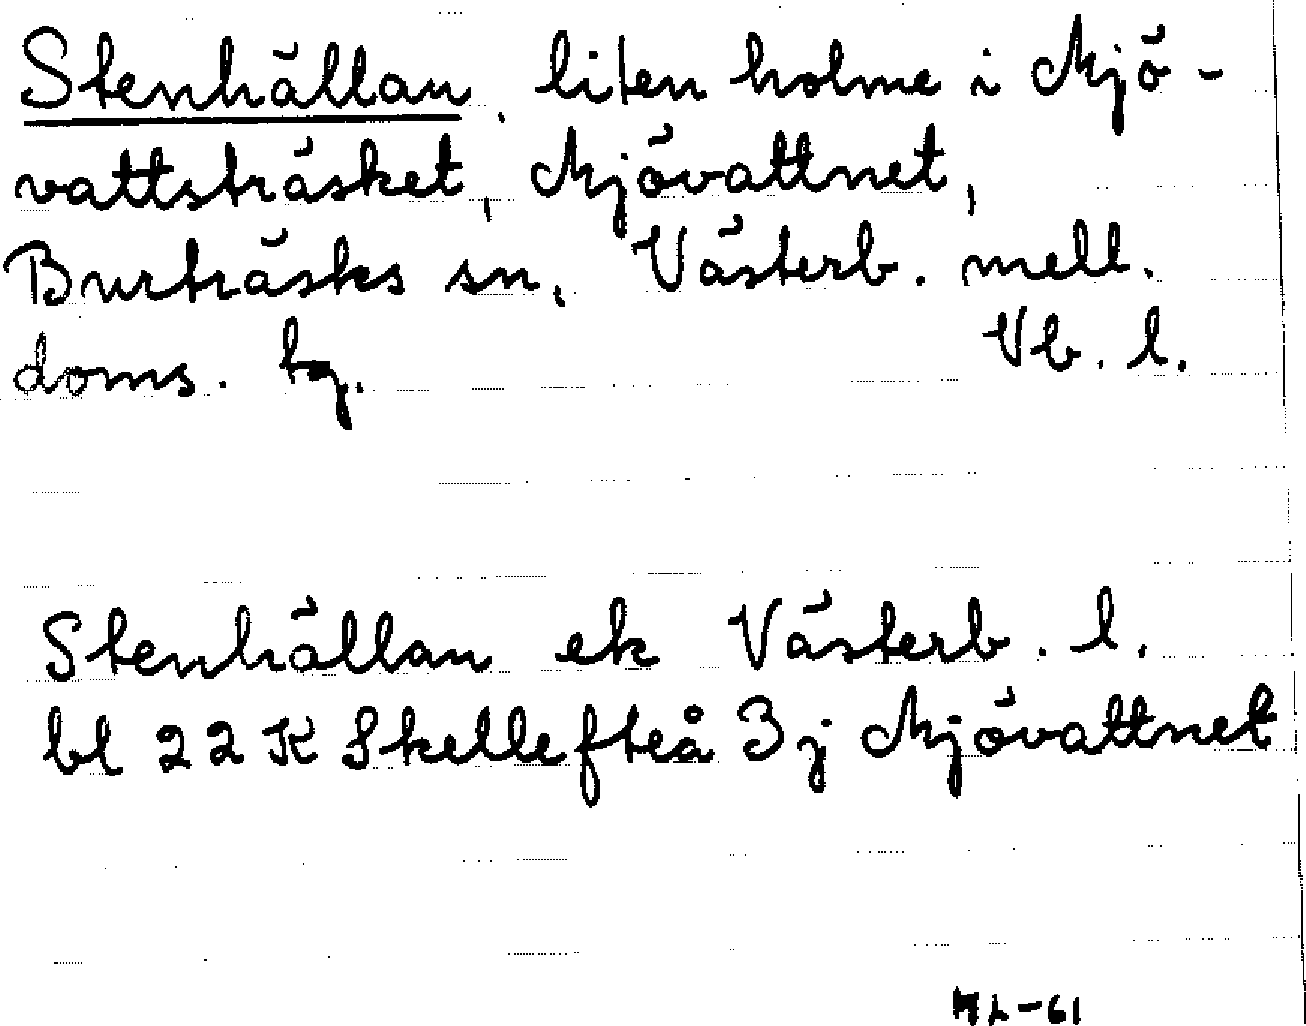 Stenhällan, liten holme i Mjö-
vattsträsket, Mjövattnet,
Burträsks sn, Västerb. mell.
doms. tg. Vb. l.
Stenhällan ek Västerb. l.
bl 22 K Skellefteå 3 j Mjövattnet